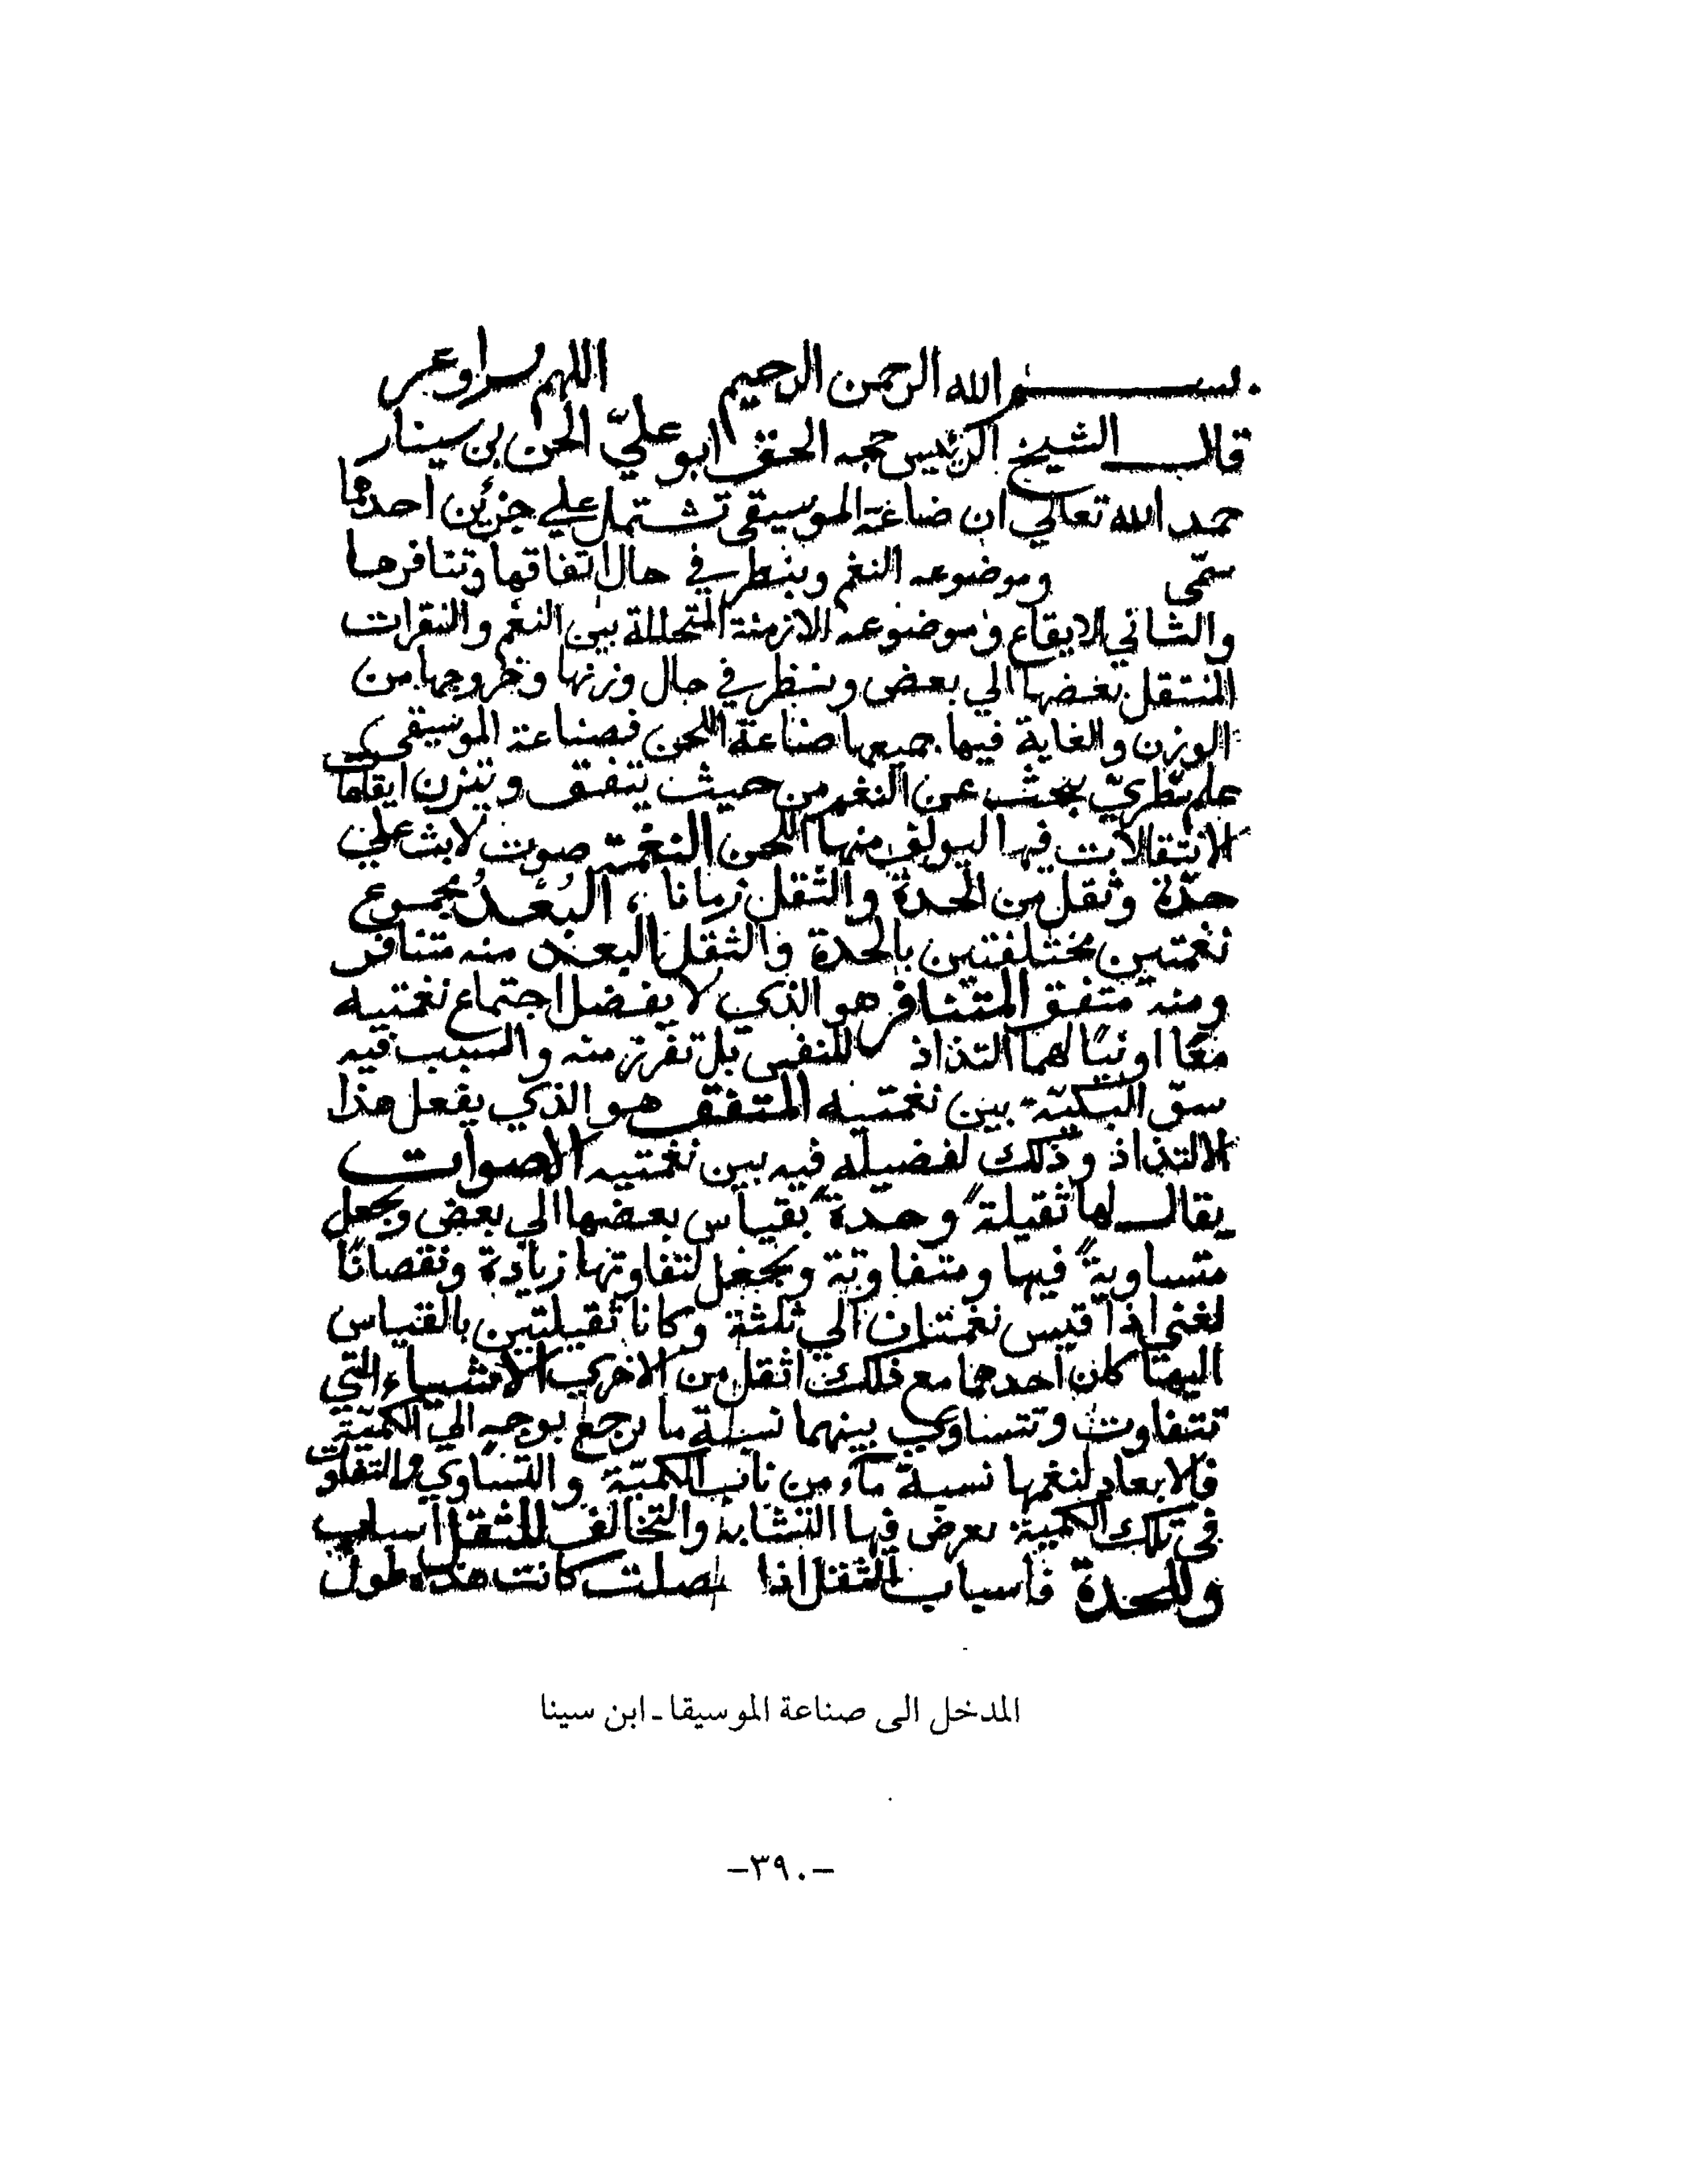 بسم الله الرحمن الرحيم اللهم
قال الشيخ الرئيس حجه الحق ابو عليّ الحسن بن سينا
حمد الله تعالي ان ضاعة الموسيقى تشتمل علي جزئين احدهما
سمّى وموضوعه النغم وينظر في حال اتفاقها وتنافرها
والثاني الايقاع وموضوعه الازمنة المتخللة بين النغم والنقرات
المنتقل بعضها الي بعض وينظر في حال وزنها وخروجها من
الوزن والغاية فيها جميعها صناعة اللحن فصناعة الموسيقى
علم نظريّ يبحث عن النغم من حيث يتفق ويتزن ايقاعات
الانتقالات فيها ليولف منها اللحن النغمة صوت لابث علي
حدّة وثقل من الحدة والثقل زمانا ، البُعدُ مجموع
نغمتين مختلفتين بالحدة والثقل البعد منه متنافر
ومنه متفق المتنافر هو الذي لا يفضل اجتماع نغمتيه
معًا لهما التذاذ للنفس بل تفرز منه والسبب فيه
بين نغمتيه المتفق هو الذي يفعل هذا
الالتذاذ وذلك لفضيله فيه بين نغمتيه الاصوات
يقال لها ثقيلة وحدة بقياس بعضها الي بعض ويجعل
متساوية فيها ومتفاوتة ويجعل لتفاوتها زيادة ونقصانًا
اذا قيس نغمتان الي ثلثة وكانا ثقيلتين بالقياس
اليهما كان احدهما مع ذلك اثقل من الاخري الاشياء التي
تتفاوت وتتساوي بينهما نسبة ما يرجع بوجهٍ الي الكميّة
فالابعاد لنغمها نسبة ماء من الكميّة والتساوي والتفاوت
في تلك الكمية يعرض فيها التشابه والتخالف للثقل اسباب
وللحدة فاسباب الثقل اذا كانت هذه طول
المدخل الى صناعة الموسيقا ـ ابن سينا
–٣٩٠–